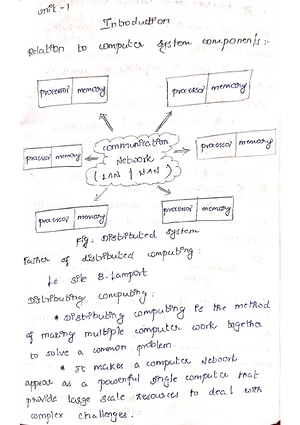 unit-1
Introduction
Relation to computer system components:-
processor memory
processor memory
processor memory
communication
Network
(LAN / WAN)
processor memory
processor memory
processor memory
Fig: Distributed system
Father of distributed computing:
Le sile B. Lamport
Distributing computing:
* Distributing computing is the method
of making multiple computer work together
to solve a common problem.
* It makes a computer Network
appear as a powerful single computer that
provide large scale resources to deal with
complex challenges.